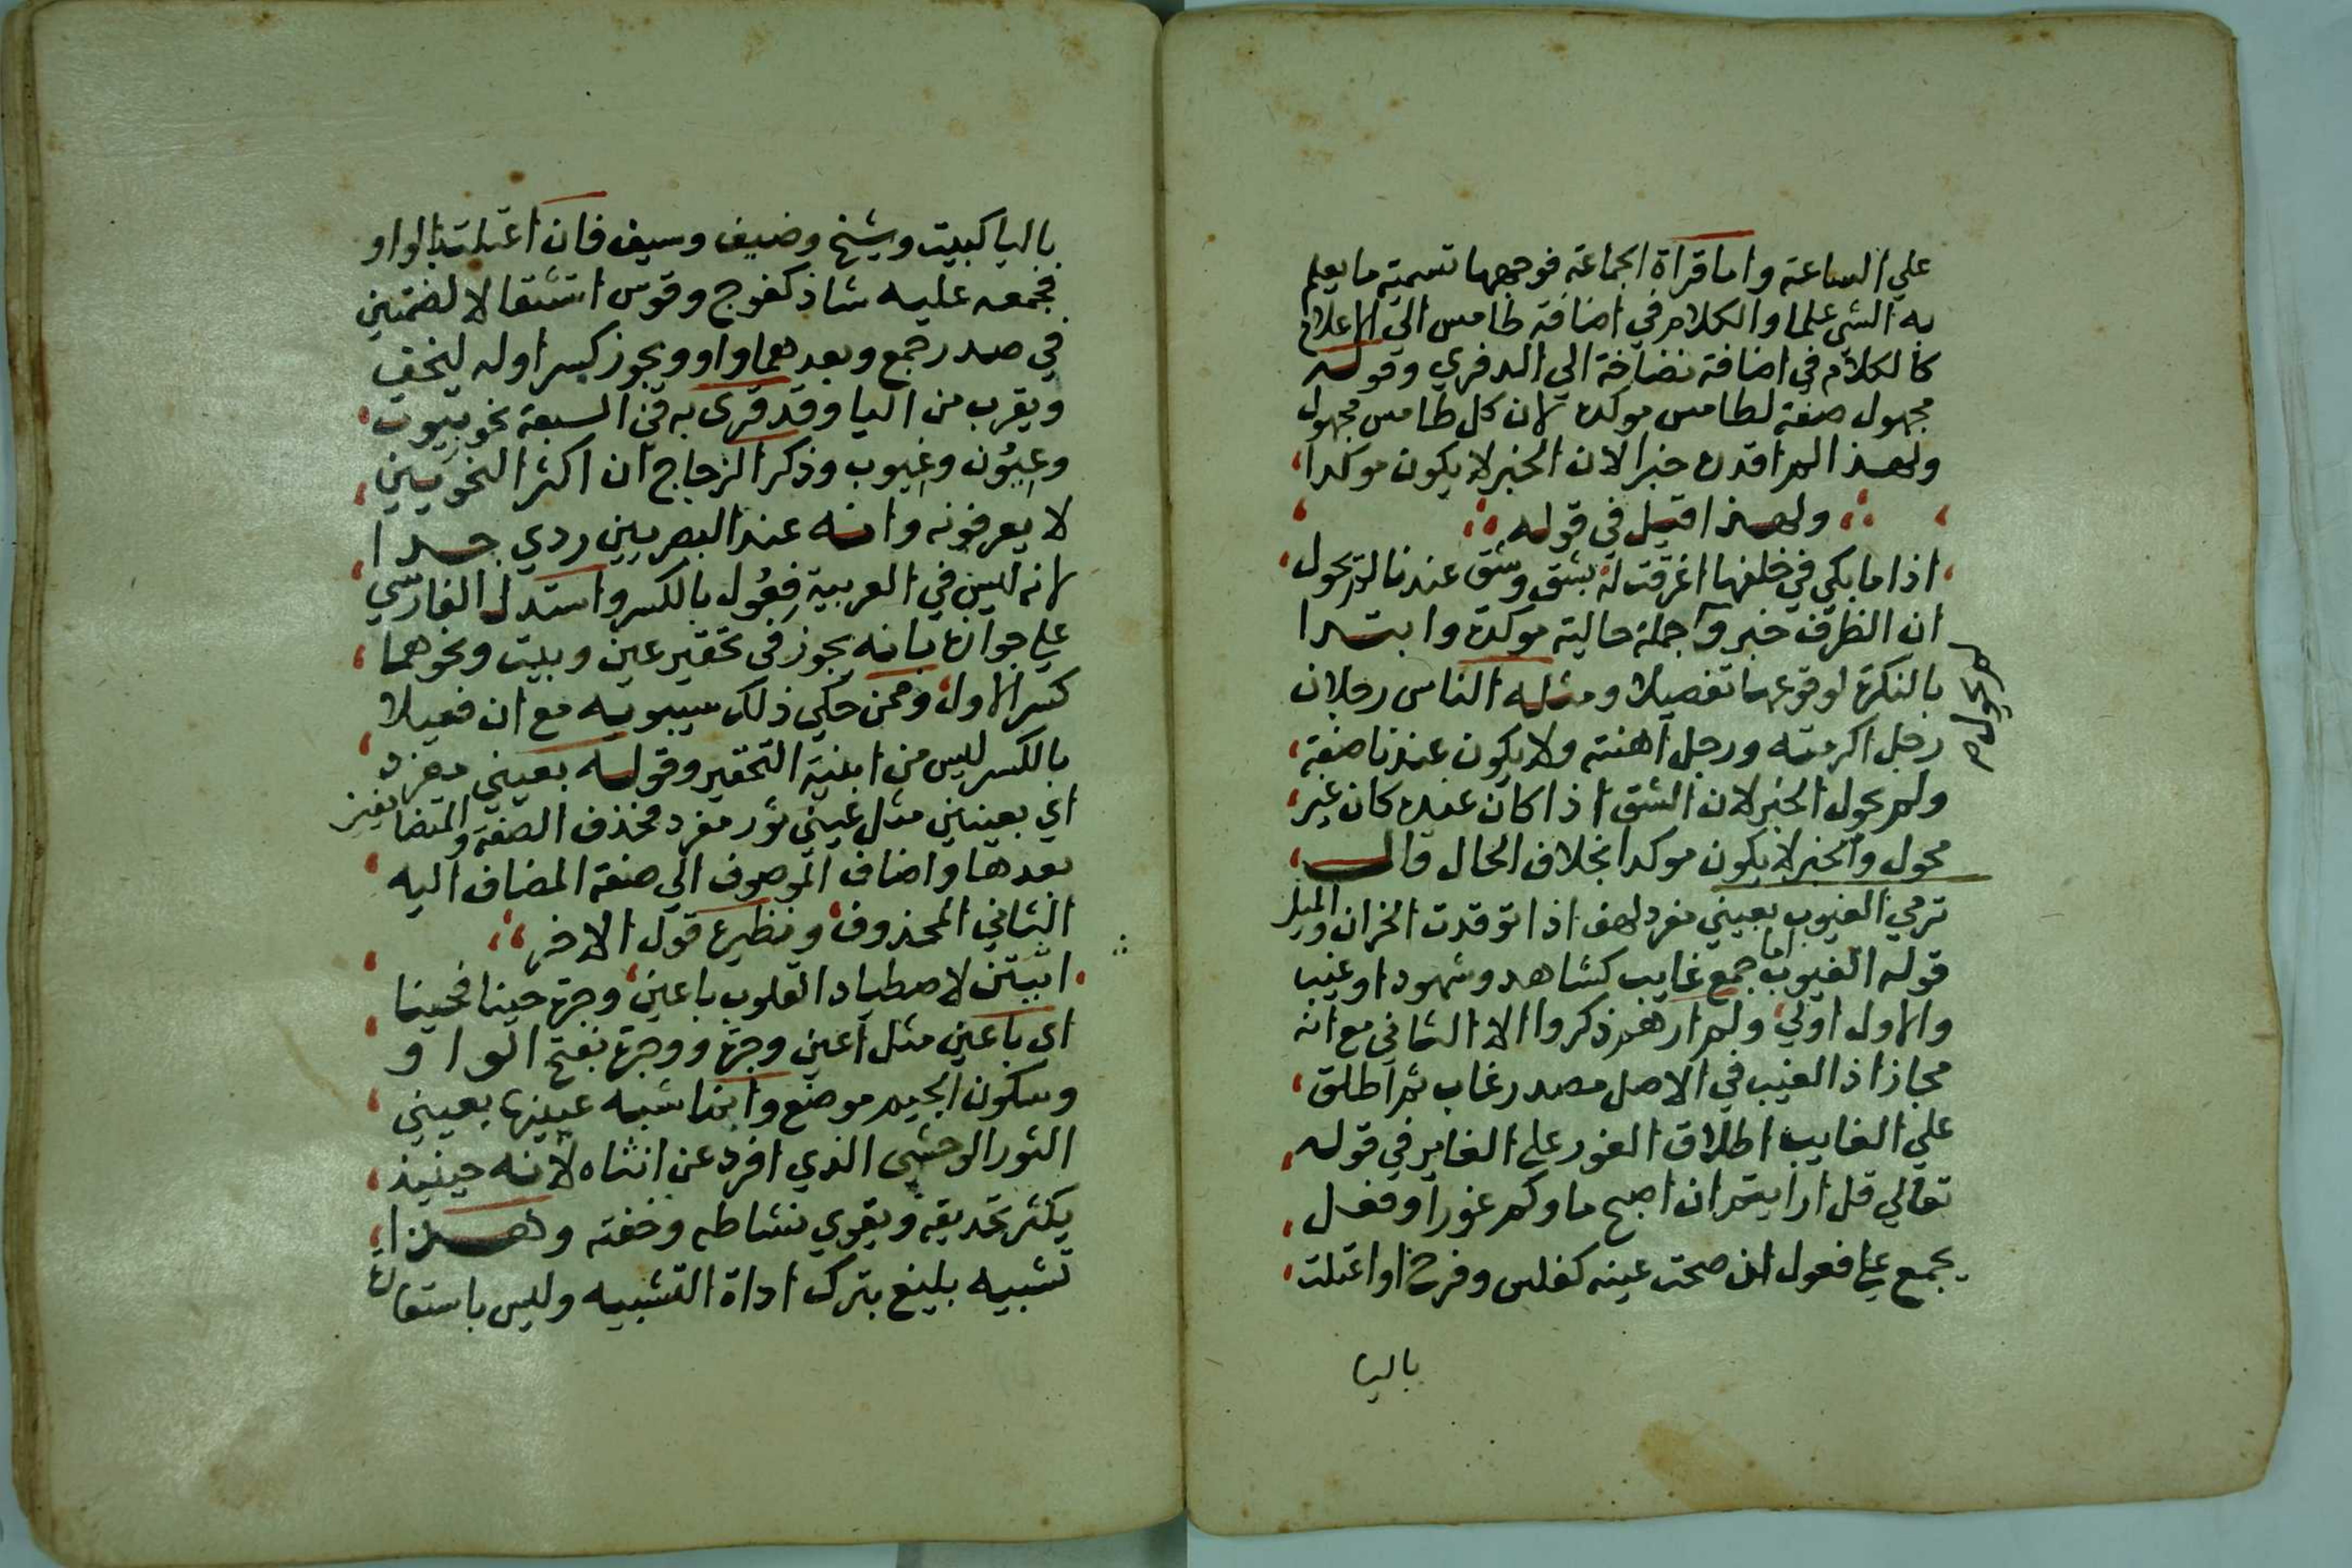 علي الساعة واما قراة الجماعة فوجهها تسمية ما يعلم
به الشي علما والكلام في اضافة طامس الي الاعلام
كالكلام في اضافة نضاخة الي الدفري وقوله
مجهول صفة لطامس موكدة لان كل طامس مجهول
ولهذا لم اقدره خبرا لان الخبر لا يكون موكدا
ولهذا قيل في قوله
اذا ما بكي في خلفها اغرقت له بشق وشق عندنا لم يحول
ان الظرف خبر وجملة حالية موكدة وابتدا
بالنكرة لوقوعها تفصيلا ومثله الناس رجلان
رجل اكرمته ورجل اهنته ولا يكون عندنا صفة
ولم يحول الخبر لان الشق اذا كان عنده كان غير
محول والخبر لا يكون موكدا بخلاف الحال قال
ترمي الغيوب بعيني مفرد لهق اذا توقدت الحزان والميل
قوله الغيوب اما جمع غايب كشاهد وشهود او غيب
والاول اولي ولم ارهم ذكروا الا الثاني مع انه
مجاز اذ الغيب في الاصل مصدر غاب ثم اطلق
علي الغايب اطلاق الغور علي الغاير في قوله
تعالي قل ارايتم ان اصبح ماوكم غورا وفعل
يجمع علي فعول ان صحت عينه كفلس وفرخ او اعتلت
باليا
لم يحول
باليا كبيت وشيخ وضيف وسيف فان اعتلت بالواو
فجمعه عليه شاذ كفوج وقوس استثقالا لضمتين
في صدر جمع وبعدهما واو ويجوز كسر اوله ليخف
ويقرب من اليا وقد قرى به في السبعة نحو بيوت
وعيون وغيوب وذكر الزجاج ان اكثر النحويين
لا يعرفونه وانه عند البصريين ردي جدا
لانه ليس في العربية فعول بالكسر واستدل الفارسي
علي جوازه بانه يجوز في تحقير عين وبيت ونحوهما
كسر الاول وممن حكي ذلك سيبويه مع ان فعيلا
بالكسر ليس من ابنية التحقير وقوله بعيني مفرد
اي بعينين مثل عيني ثور مفرد فحذف الصفة والمتضايفين
بعدها واضاف الموصوف الي صفة المضاف اليه
الثاني المحذوف ونظيره قول الاخر
اتيتن لاصطياد القلوب باعين وجرة حينا فحينا
اي باعين مثل اعين وجرة ووجرة بفتح الواو
وسكون الجيم موضع وانما شبه عينيها بعيني
الثور الوحشي الذي افرد عن انثاه لانه حينيذ
يكثر تحديقه ويقوي نشاطه وخفته وهذا
تشبيه بليغ بترك اداة التشبيه وليس باستعارة